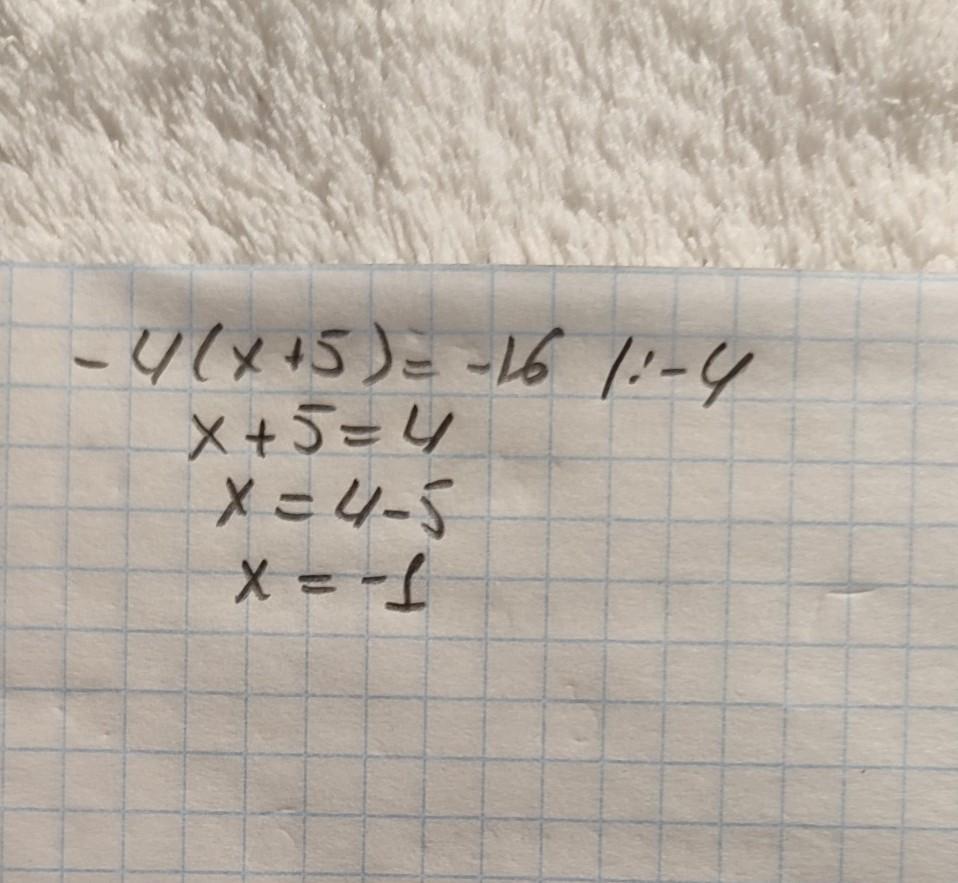 -4(x+5)=-16 |:-4
x+5=4
x=4-5
x=-1